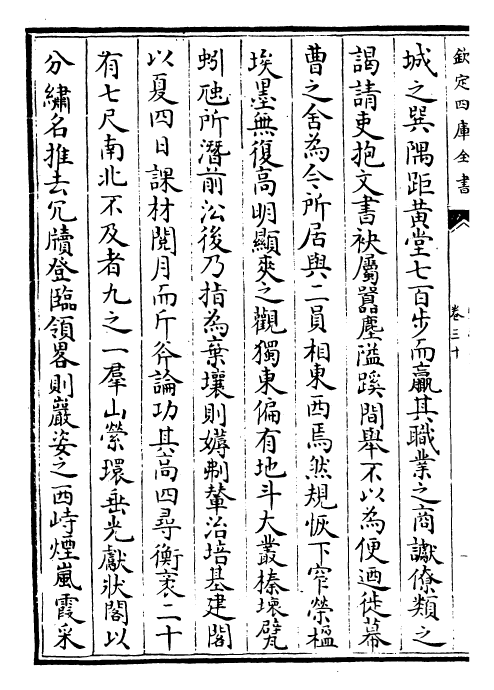 欽定四庫全書
卷三十
城之巽隅距黄堂七百步而贏其職業之商讞僚類之
謁請吏抱文書袂屬囂塵溢蹊間舉不以為便迺徙幕
曹之舍為今所居與二員相東西焉然規恢下窄榮楹
埃墨無復高明顯爽之觀獨東偏有地斗大叢榛壊甓
蚓虺所潛前㳂後乃指為棄壤則㛧剃輦治培基建閣
以夏四日課材閲月而斤斧論功其髙四尋衡袤二十
有七尺南北不及者九之一羣山縈環垂光獻狀閣以
分繡名推去冗牘登臨領畧則巖姿之西峙煙嵐霞采